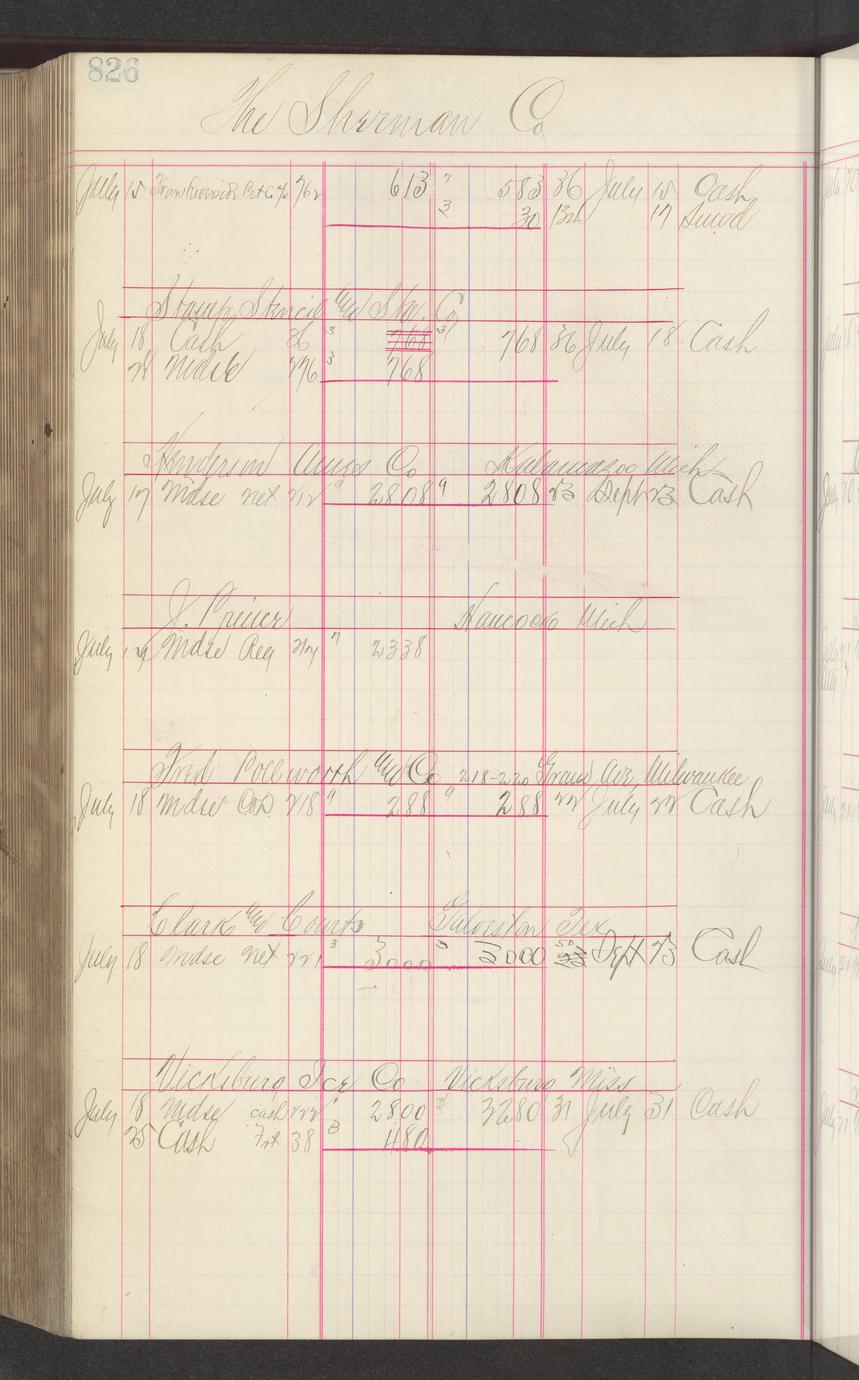 826
The Sherman Co
July 15 762 613 7 583 86 July 15 Cash
3 30 134 17
Stamp Stencil and Co
July 18 Cash 86 3 768 3 768 86 July 18 Cash
28 Mdse 276 3 768
Henderson Ames Co Kalamazoo Mich
July 17 Mdse net 212 9 2808 9 2808 23 Sept 23 Cash
J. Hancock Mich
July Mdse Reg 7 2338
Fred Pollworth and Co 218-220 Grand Ave Milwaukee
July 18 Mdse 218 9 288 9 288 22 July 22 Cash
Clark and Courts Galveston Tex
July 18 Mdse net 221 3 3000 3000 Sept 23 Cash
Vicksburg Ice Co Vicksburg Miss
July 18 Mdse cash 222 2800 3280 31 July 31 Cash
25 Cash Frt 38 3 480